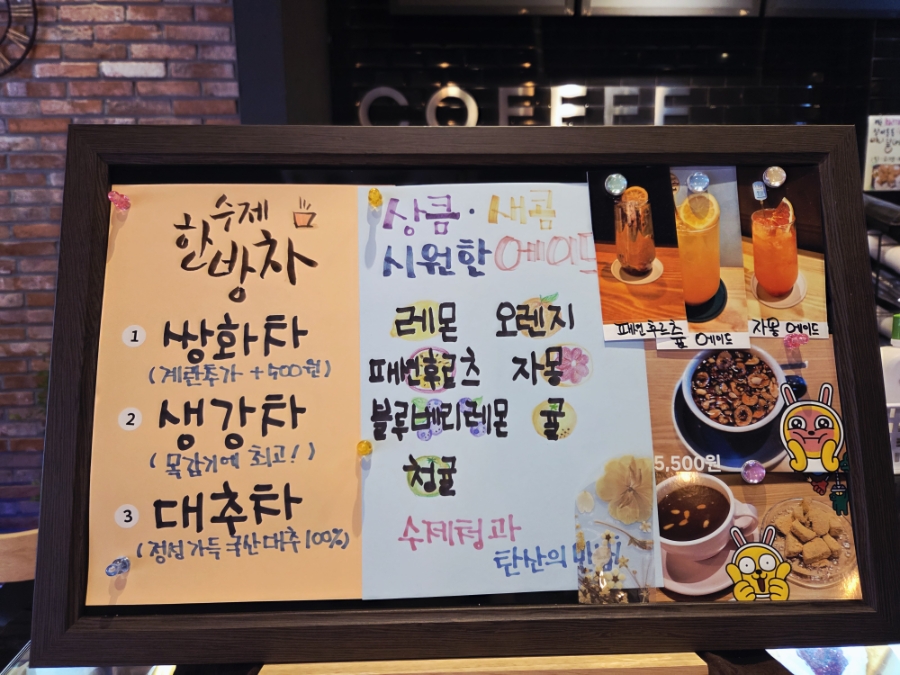 COFFEE
수제
한방차
1 쌍화차
(계란추가 +500원)
2 생강차
(목감기에 최고!)
3 대추차
(정성가득 국산대추 100%)
상큼·새콤
시원한 에이드
레몬 오렌지
패션후르츠 자몽
블루베리레몬 귤
청귤
수제청과
탄산의 만남!
패션후르츠
귤 에이드
자몽 에이드
5,500원